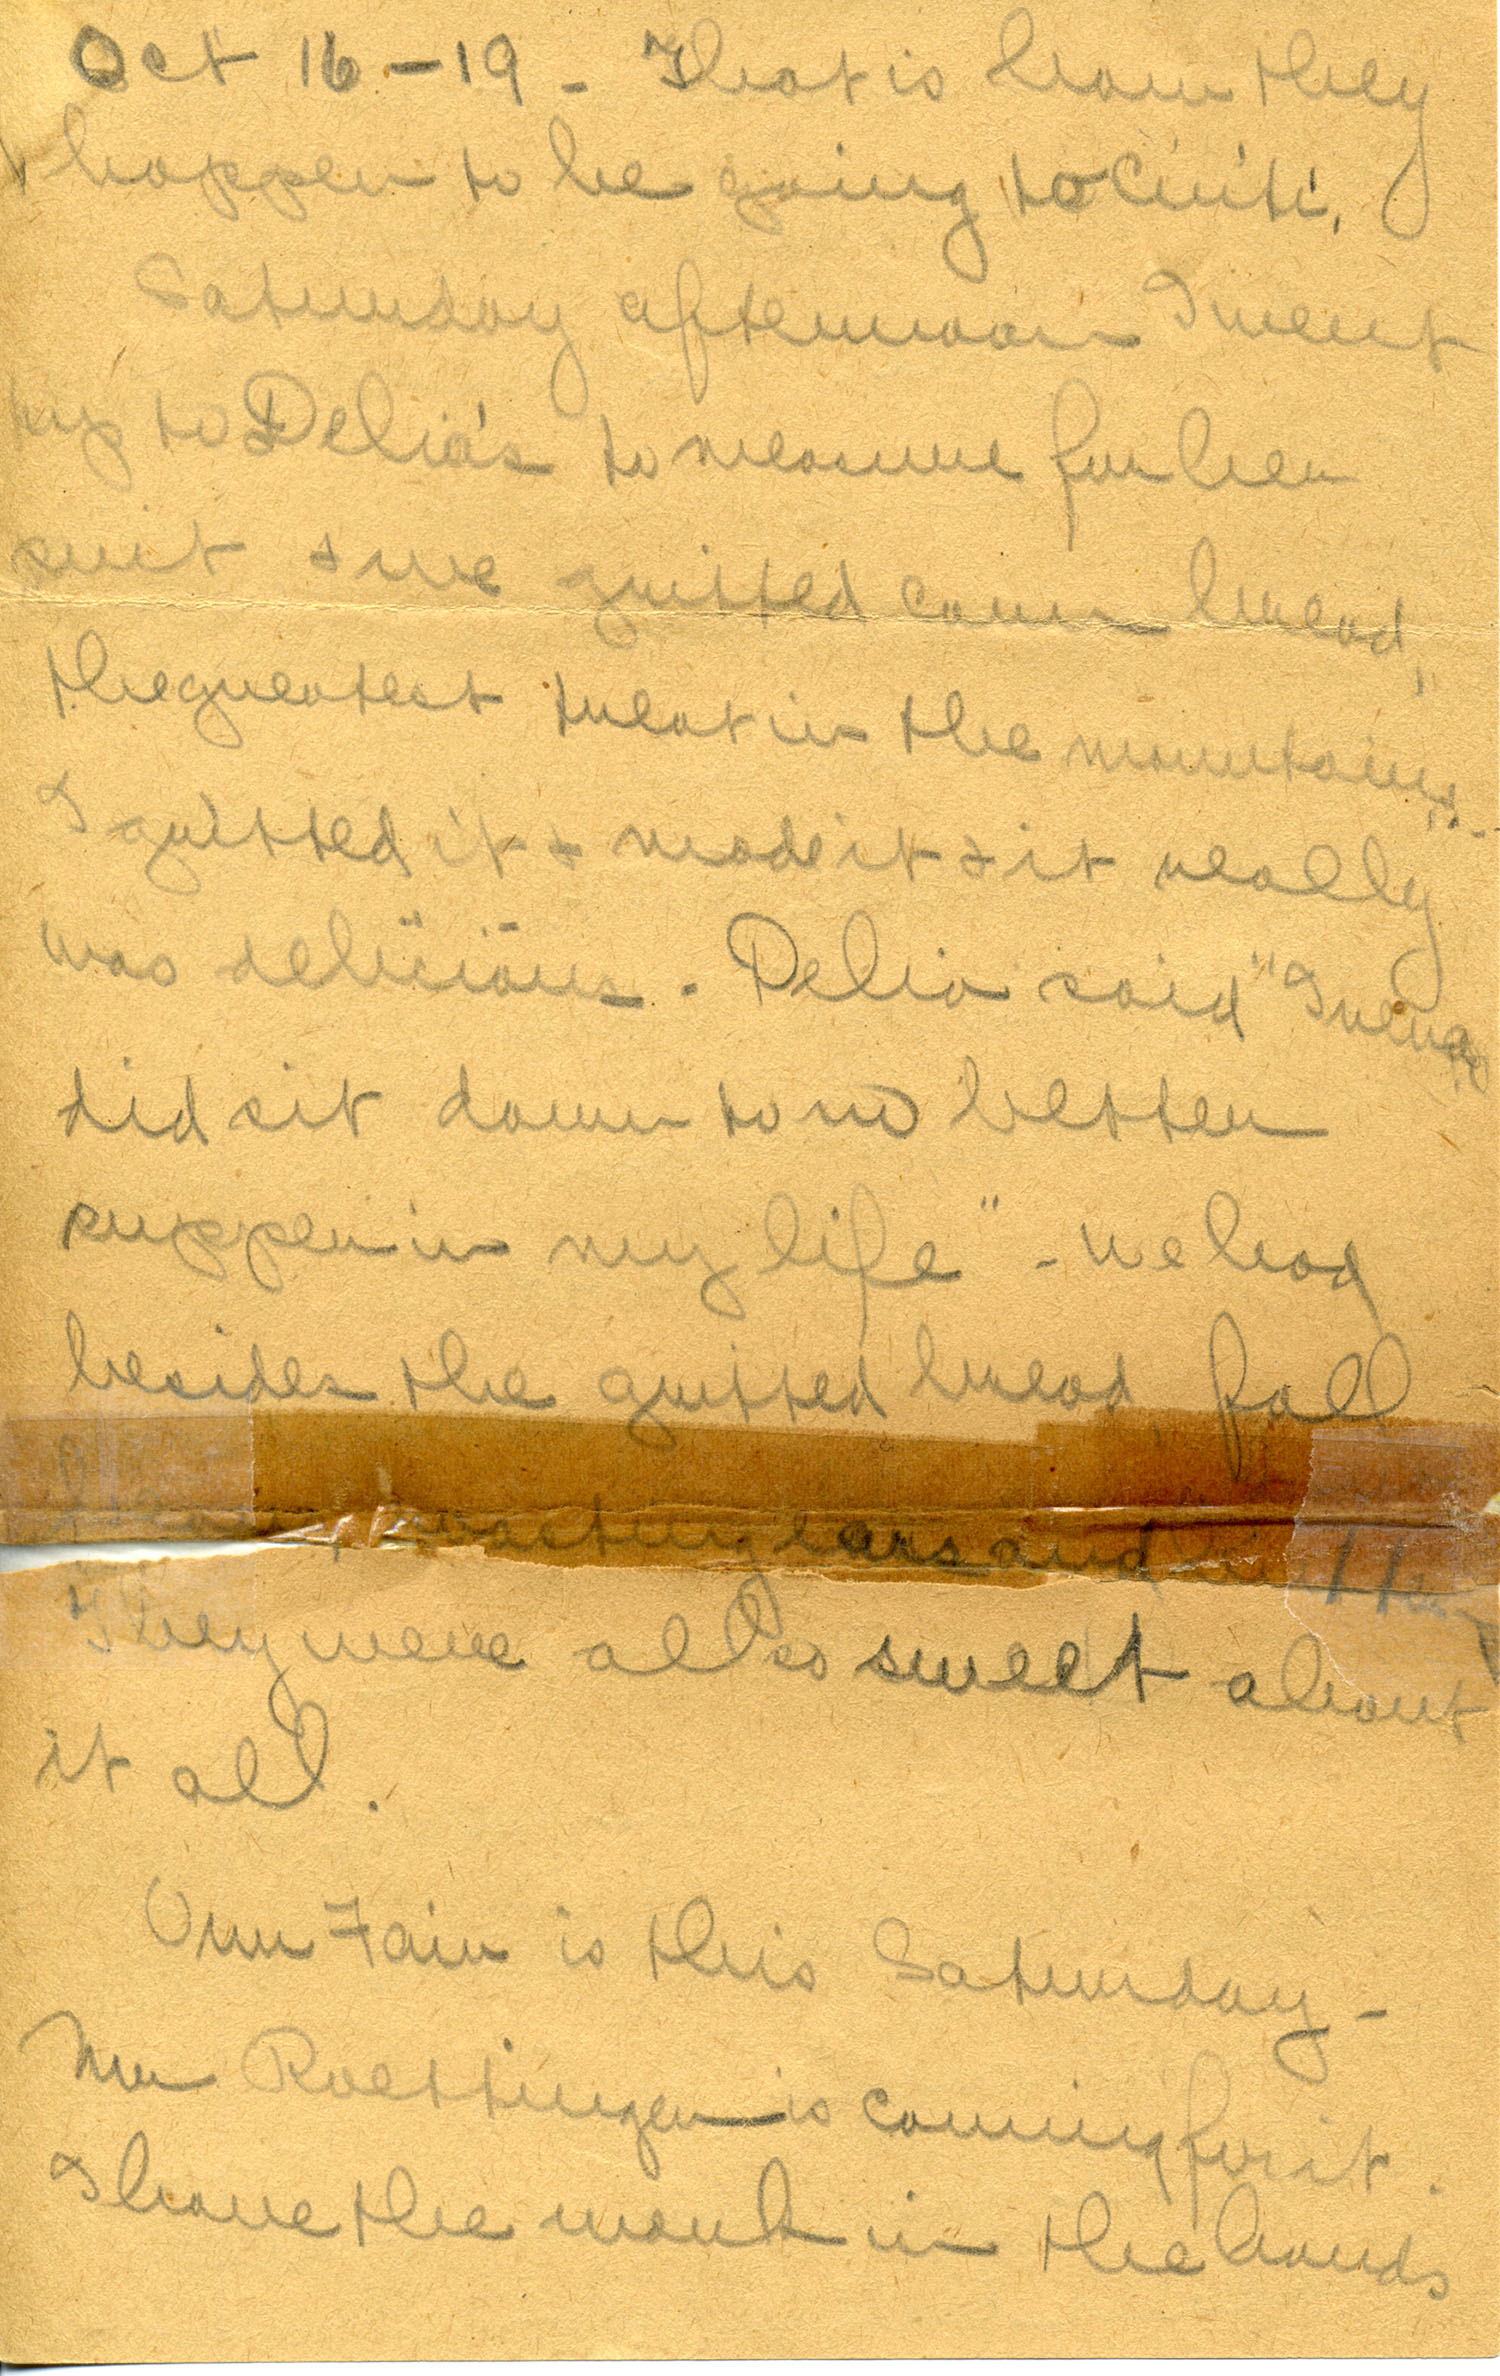 Oct 16 - 19 - That is how they
happen to be going to Cinti.
Saturday afternoon I went
up to Delia's to measure for her
suit & we gritted corn bread,
the greatest treat in the mountains.
I gritted it & made it & it really
was delicious. Delia said "I never
did sit down to no better
supper in my life" - We had
besides the gritted bread, fall
roasting ears and
They were all so sweet about
it all.
Our Fair is this Saturday -
Mr Roettinger is coming for it.
I have the work in the hands